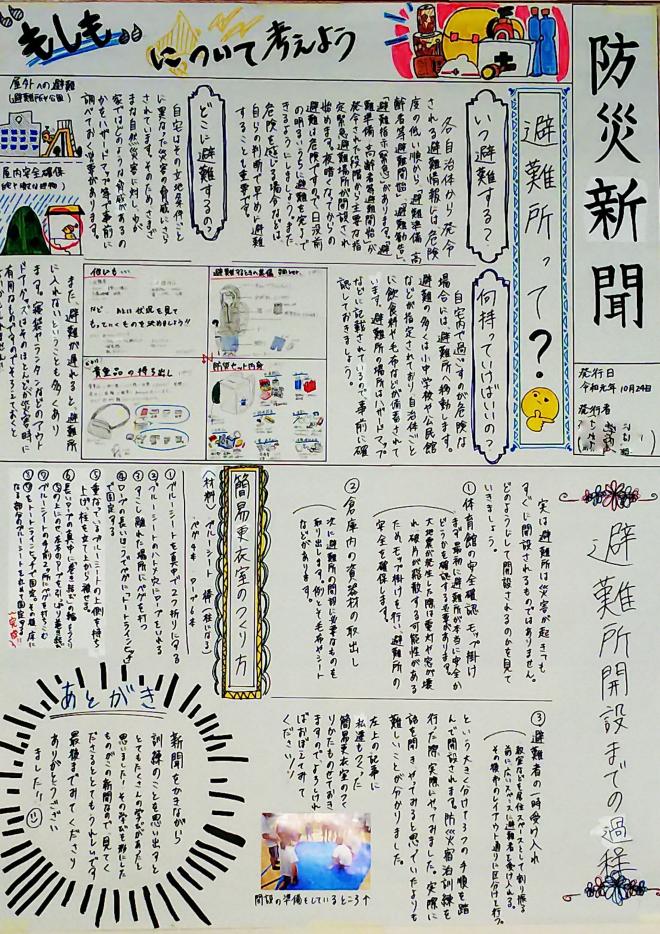 もしも
について考えよう
防災新聞
発行日
令和元年10月29日
発行者
避難所って?
いつ避難する?
各自治体から発令
される避難情報には危険
度の低い順から「避難準備・高
齢者等避難開始」「避難勧告」
「避難指示(緊急)」があります。「避
難準備・高齢者等避難開始」が
発令された段階から主要な指
定緊急避難場所が開設され
始めます。夜暗くなってからの
避難は危険ですので日没前
の明るいうちに避難を完了で
きるようにしましょう。また、
危険を感じる場合などは、
自らの判断で早めに避難
することも重要です。
どこに避難するの?
自宅はその立地条件ごと
に異なった災害の脅威にさら
されています。そのため、さまざ
まな自然災害に対し、わが
家ではどのような脅威があるの
かを、ハザードマップ等で事前に
調べておく必要があります。
屋外への避難
(避難所や公園)
屋内安全確保
何持っていけばいいの?
自宅内で過ごすのが危険な
場合には、避難所へ移動します。
避難所の多くは小中学校や公民館
などが指定されており、自治体ごと
に飲食料や毛布などが備蓄されて
います。避難所の場所はハザードマップ
などに記載されているので、事前に確
認しておきましょう。
避難するときの準備
防災セット内容
他にも…
など 人に状況を見て
もっていくものを決めましょう!!
貴重品の持ち出し
また、避難が遅れると避難所
に入れないということも多くあり
ます。寝袋やランタンなどのアウト
ドアグッズはそのほとんどが災害時に
避難所開設までの過程
実は避難所は災害が起きても
すぐに開設されるものではありません。
どのようにして開設されるのかを見て
いきましょう。
①体育館の安全確認、モップ掛け
まず最初に避難所が本当に安全か
どうかを確認する必要があります。
大地震が発生した際は電灯や窓が壊
れ破片が散乱する可能性がある
ためモップ掛けを行い避難所の
安全を確保します。
②倉庫内の資器材の取出し
次に避難所の開設に必要なものを
取り出します。例として毛布やシート
などがあります。
③避難者の一時受け入れ
教室などを居住スペースとして割り振る
前に、広いスペースに避難者を受け入れる。
その後やのレイアウト通りに区分けを行う。
という大きく分けて3つの手順を踏
んで開設されます。防災宿泊訓練を
行った際、実際にやってみました。実際に
話を聞きやってみると思いていたよりも
難しいことが分かりました。
左上の記事に
私達もつくった
簡易更衣室のつく
りかたものせておき
ますので、よろしけれ
ばおぼえてみて
ください!!
開設の準備をしているところ↑
簡易更衣室のつくり方
(材料) ブルーシート 棒(柱になる)
ペグ4本 ロープ6本
①ブルーシートを真ん中で2つ折りにする
②ブルーシートのハトメ穴にロープをいれる
③すこし離れた場所にペグを打つ
④ロープの長いほうでペグに「トートライン」
で固定する
あとがき
新聞をかきながら
訓練のことを思い出すと
とてもたくさんの学びがあったと
思いました!その学びを形にした
ものがこの新聞なので、見てく
ださるととてもうれしいです
最後までみてくださり
ありがとうござい
ました!!